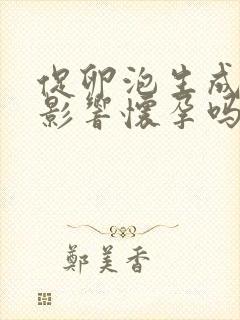 促卵泡生成
影響懷孕吗
鄭美香